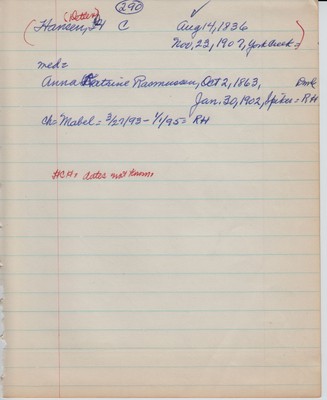 290
(Detlev)
(Hansen, H C Aug 14, 1836
Nov, 23, 1907, York Creek =)
med =
Anna Katrine Rasmussen, Oct 2, 1863,
Jan. 30, 1902, Spiker = RH
ch = Mabel = 3/27/93 - 1/1/95 = RH
HCH = dates not known